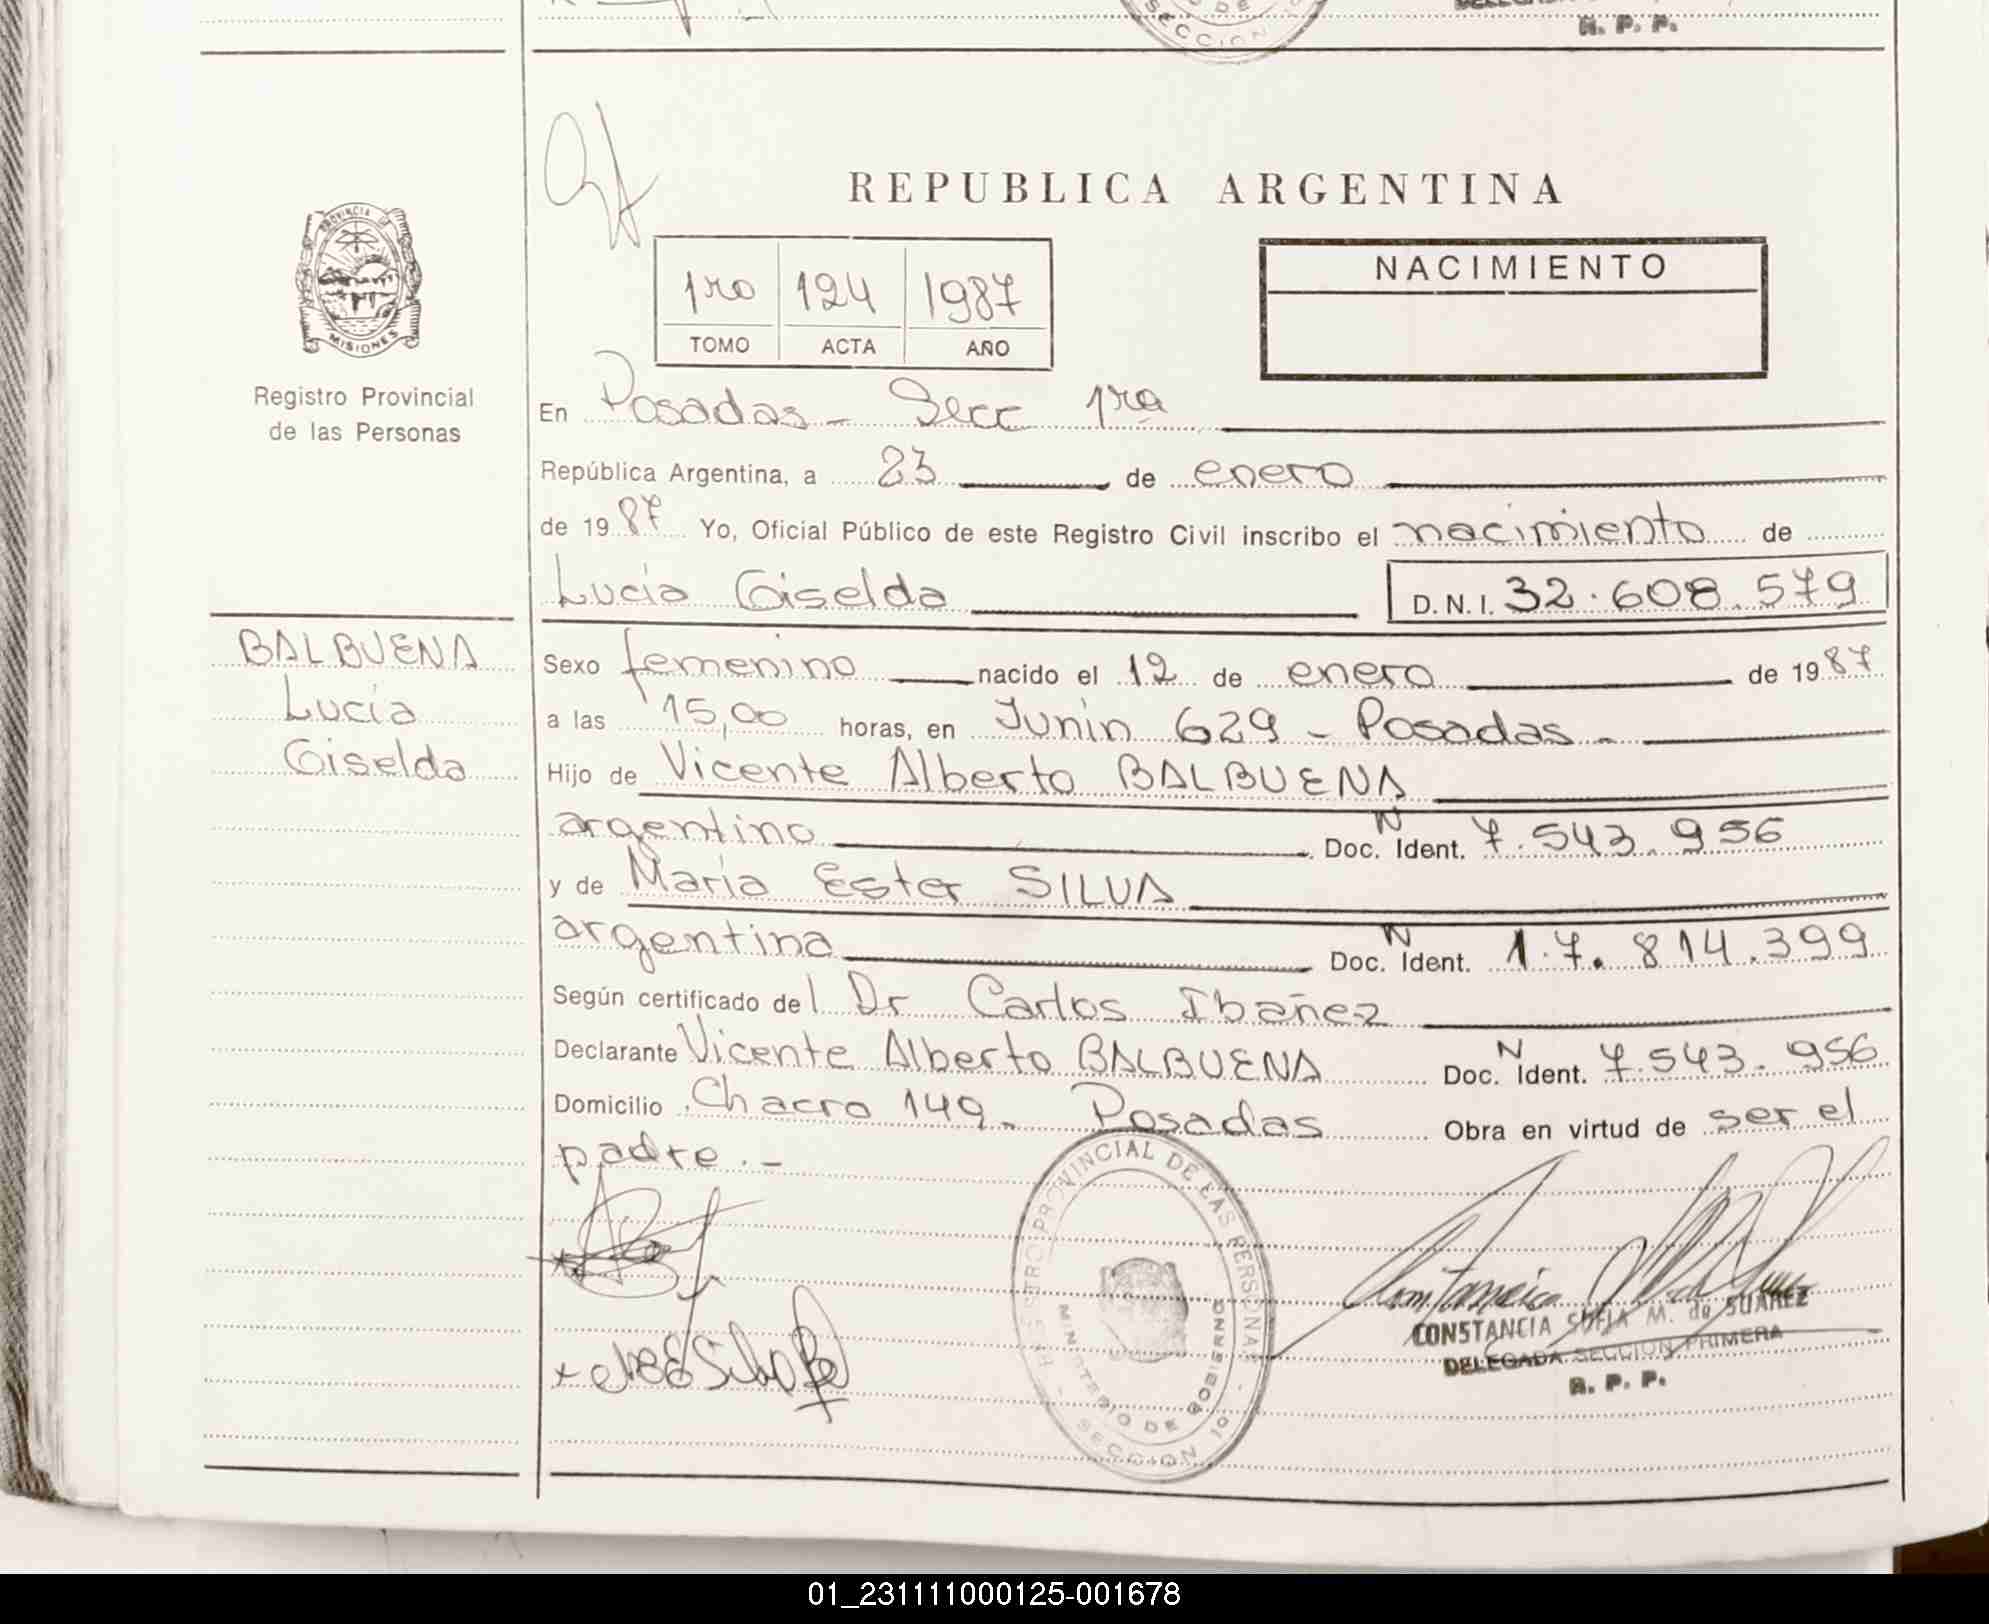 R. P. P.
PROVINCIA DE
MISIONES
Registro Provincial
de las Personas
REPUBLICA ARGENTINA
1ro 124 1987
TOMO ACTA AÑO
NACIMIENTO
En Posadas - Secc 1ra
República Argentina, a 23 de enero
de 1987 Yo, Oficial Público de este Registro Civil inscribo el nacimiento de
Lucía Giselda D.N.I. 32.608.579
BALBUENA
Lucía
Giselda
Sexo femenino nacido el 12 de enero de 1987
a las 15,00 horas, en Junín 629 - Posadas -
Hijo de Vicente Alberto BALBUENA
argentino Doc. N Ident. 7.543.956
y de María Ester SILVA
argentina Doc. N Ident. 17.814.399
Según certificado del Dr Carlos Ibañez
Declarante Vicente Alberto BALBUENA Doc. N Ident. 7.543.956
Domicilio Chacra 149 - Posadas Obra en virtud de ser el
padre.-
REGISTRO PROVINCIAL DE LAS PERSONAS
MINISTERIO DE GOBIERNO
SECCION 1º
CONSTANCIA SOFIA M. de SUAREZ
DELEGADA SECCION PRIMERA
R. P. P.
01_231111000125-001678